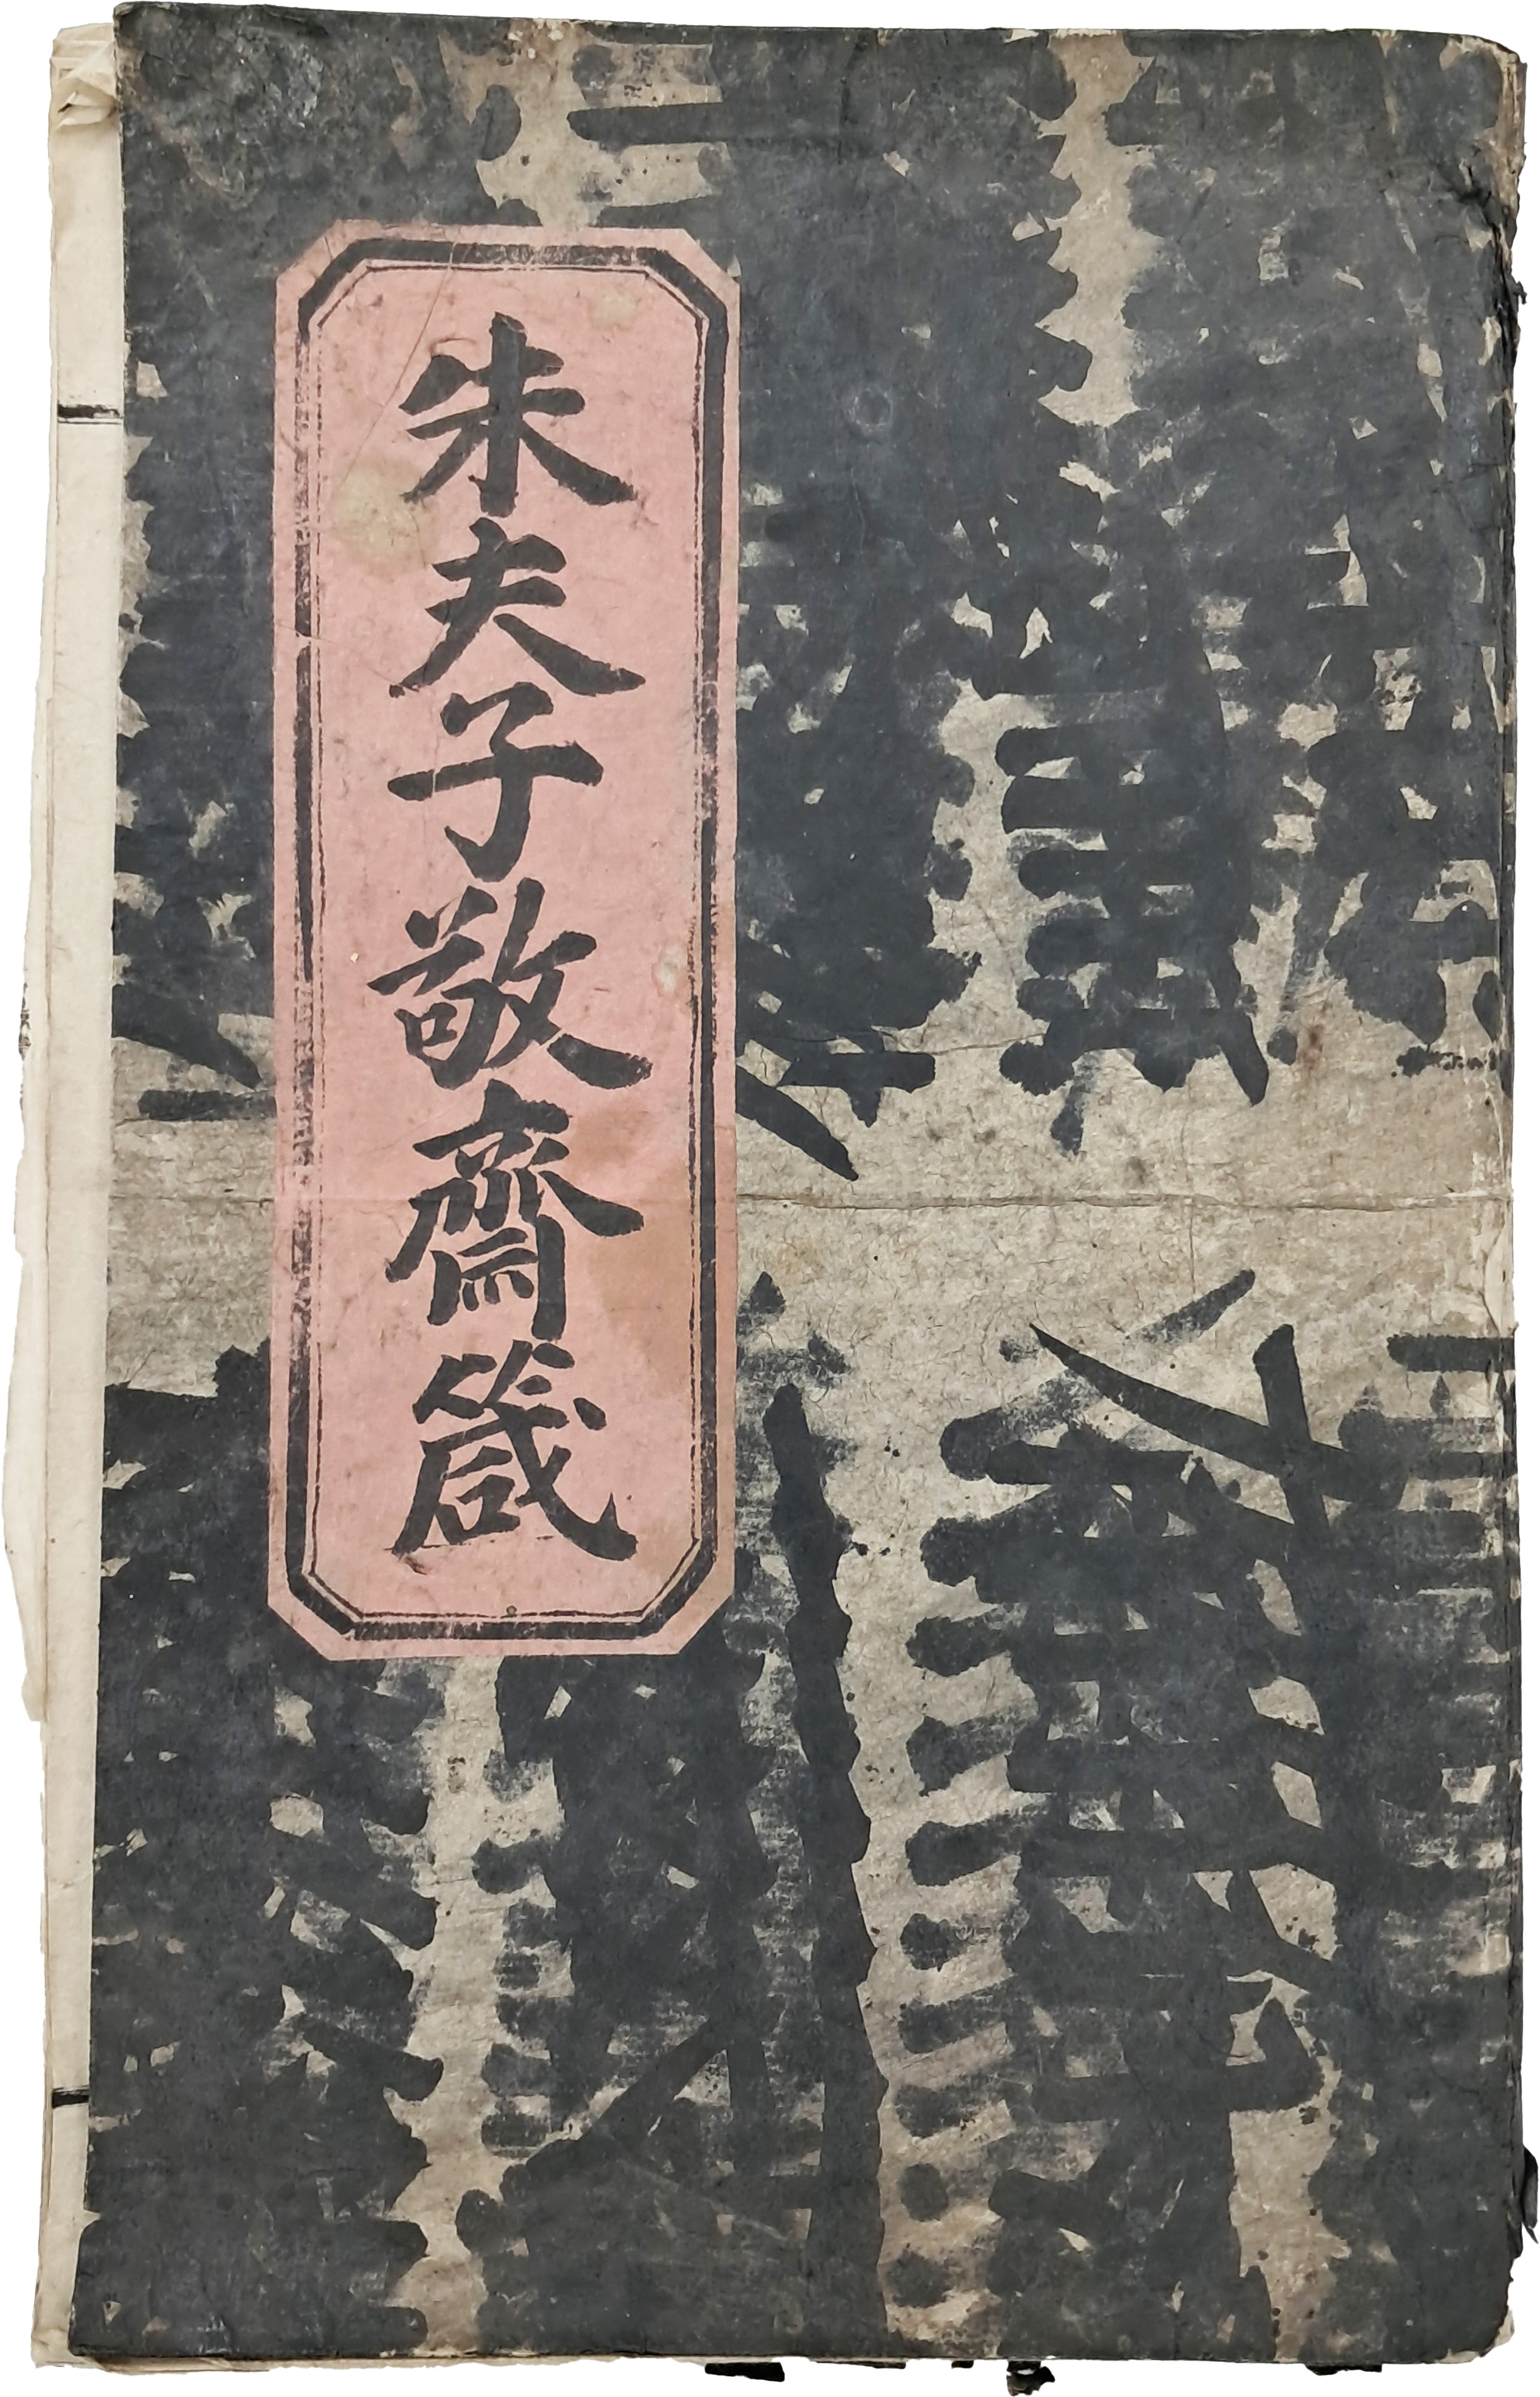 朱夫子敬齋箴